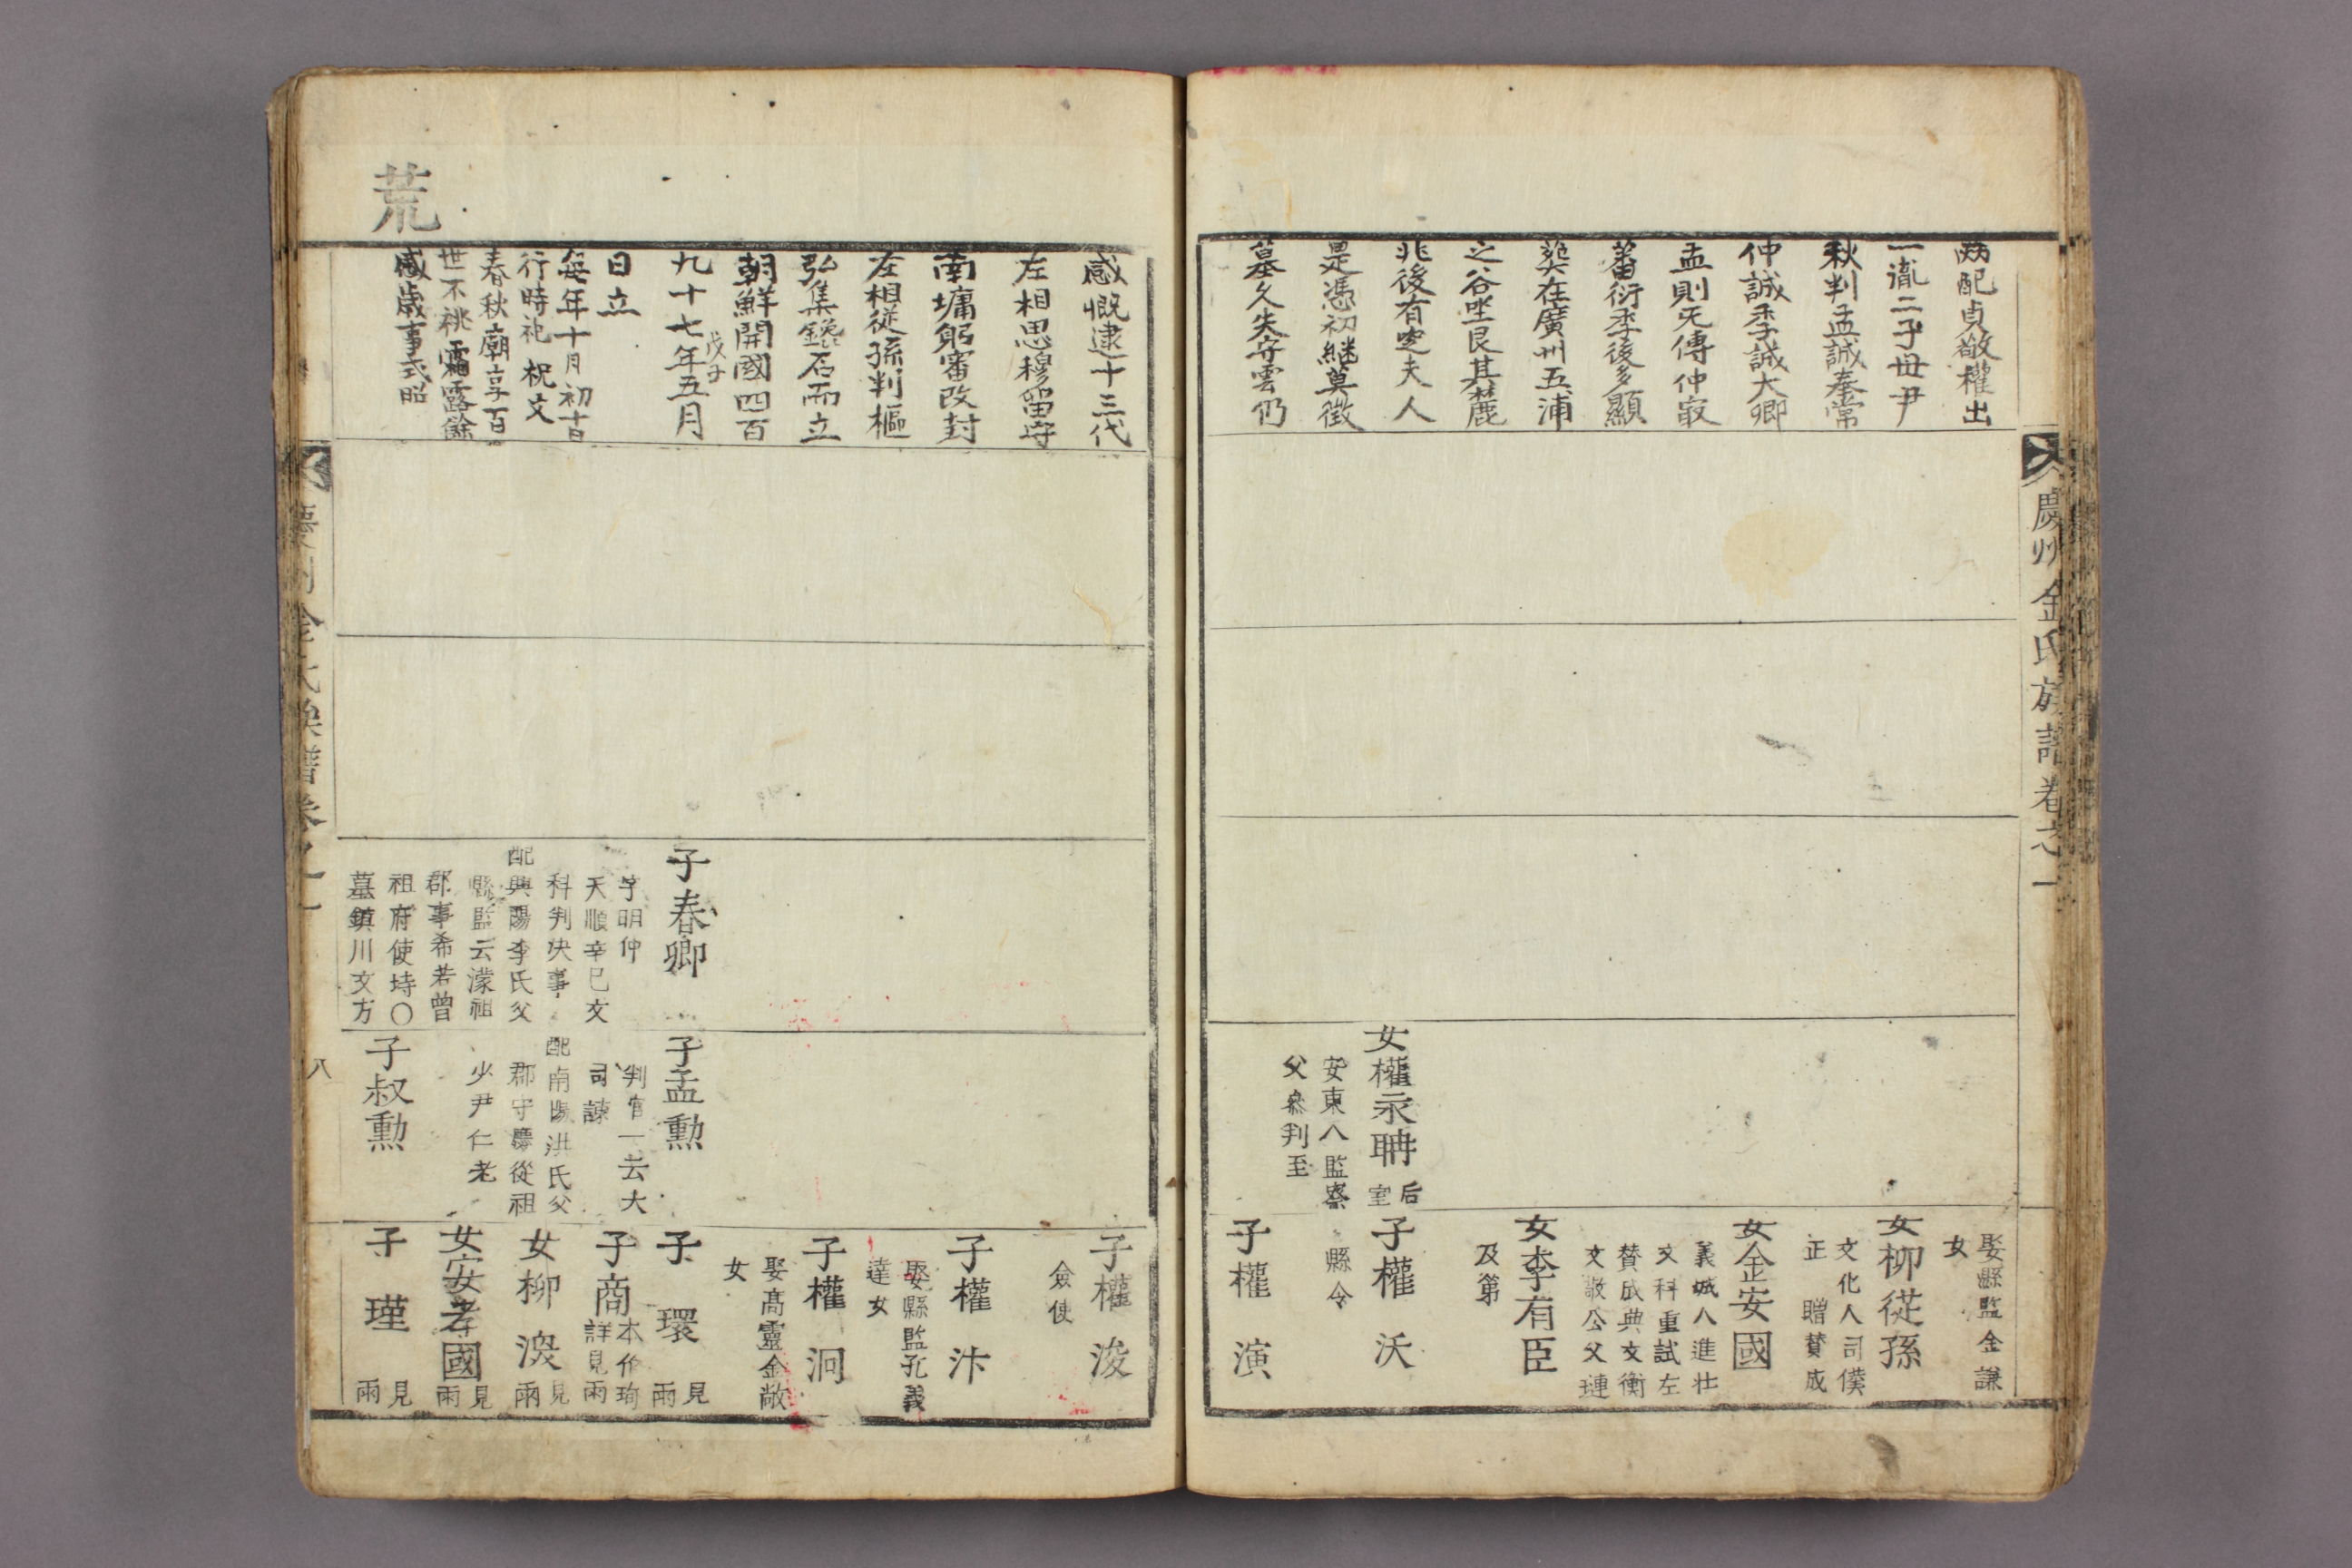 慶州金氏族譜卷之一
兩配貞敬權出
一胤二子毋尹
秋判孟誠奉常
仲誠季誠大卿
孟則旡傳仲㝡
蕃衍季後多顯
葬在廣州五浦
之谷坐艮其麓
兆後有
夫人
是憑初継莫徵
墓久失守雲仍
女權永聃
后室
安東人監察
父參判至
娶縣監金謙
女
女柳從孫
文化人司僕
正 贈賛成
女金安國
義城人進壯
文科重試左
賛成典文衡
文敬公父璉
女李有臣
及第
子權 沃
縣令
子權 演
荒
感慨逮十三代
左相思穆留守
南墉躬審改封
左相従孫判樞
弘集鑱石而立
朝鮮開國四百
九十七年
戊子
五月
日立
每年十月初十日
行時祀 祝文
春秋廟享百
世不祧霜露餘
感歲事式昭
子春卿
字明仲
天順辛巳文
科判决事
配興陽李氏父
縣監云濛祖
郡事希若曾
祖府使峙〇
墓鎮川文方
子孟勳
判官一云大
司諫
配南陽洪氏父
郡守
從祖
少尹仁老
子叔勳
子權 浚
僉使
子權 汴
娶縣監孔義
達女
子權 泂
娶高靈金敞
女
子 環
見兩
子商
本作琦
詳見兩
女柳 㴠
見兩
女安孝國
見兩
子 瑾
見兩
慶州金氏族譜卷之一
八